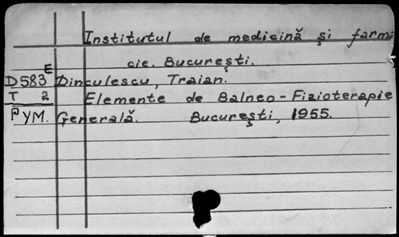 Institutul de medicină şi farma
cie. Bucureşti.
E
D583 Dinculescu, Traian.
T 2 Elemente de Balneo-Fizioterapie
PYM. Generală. Bucureşti, 1955.